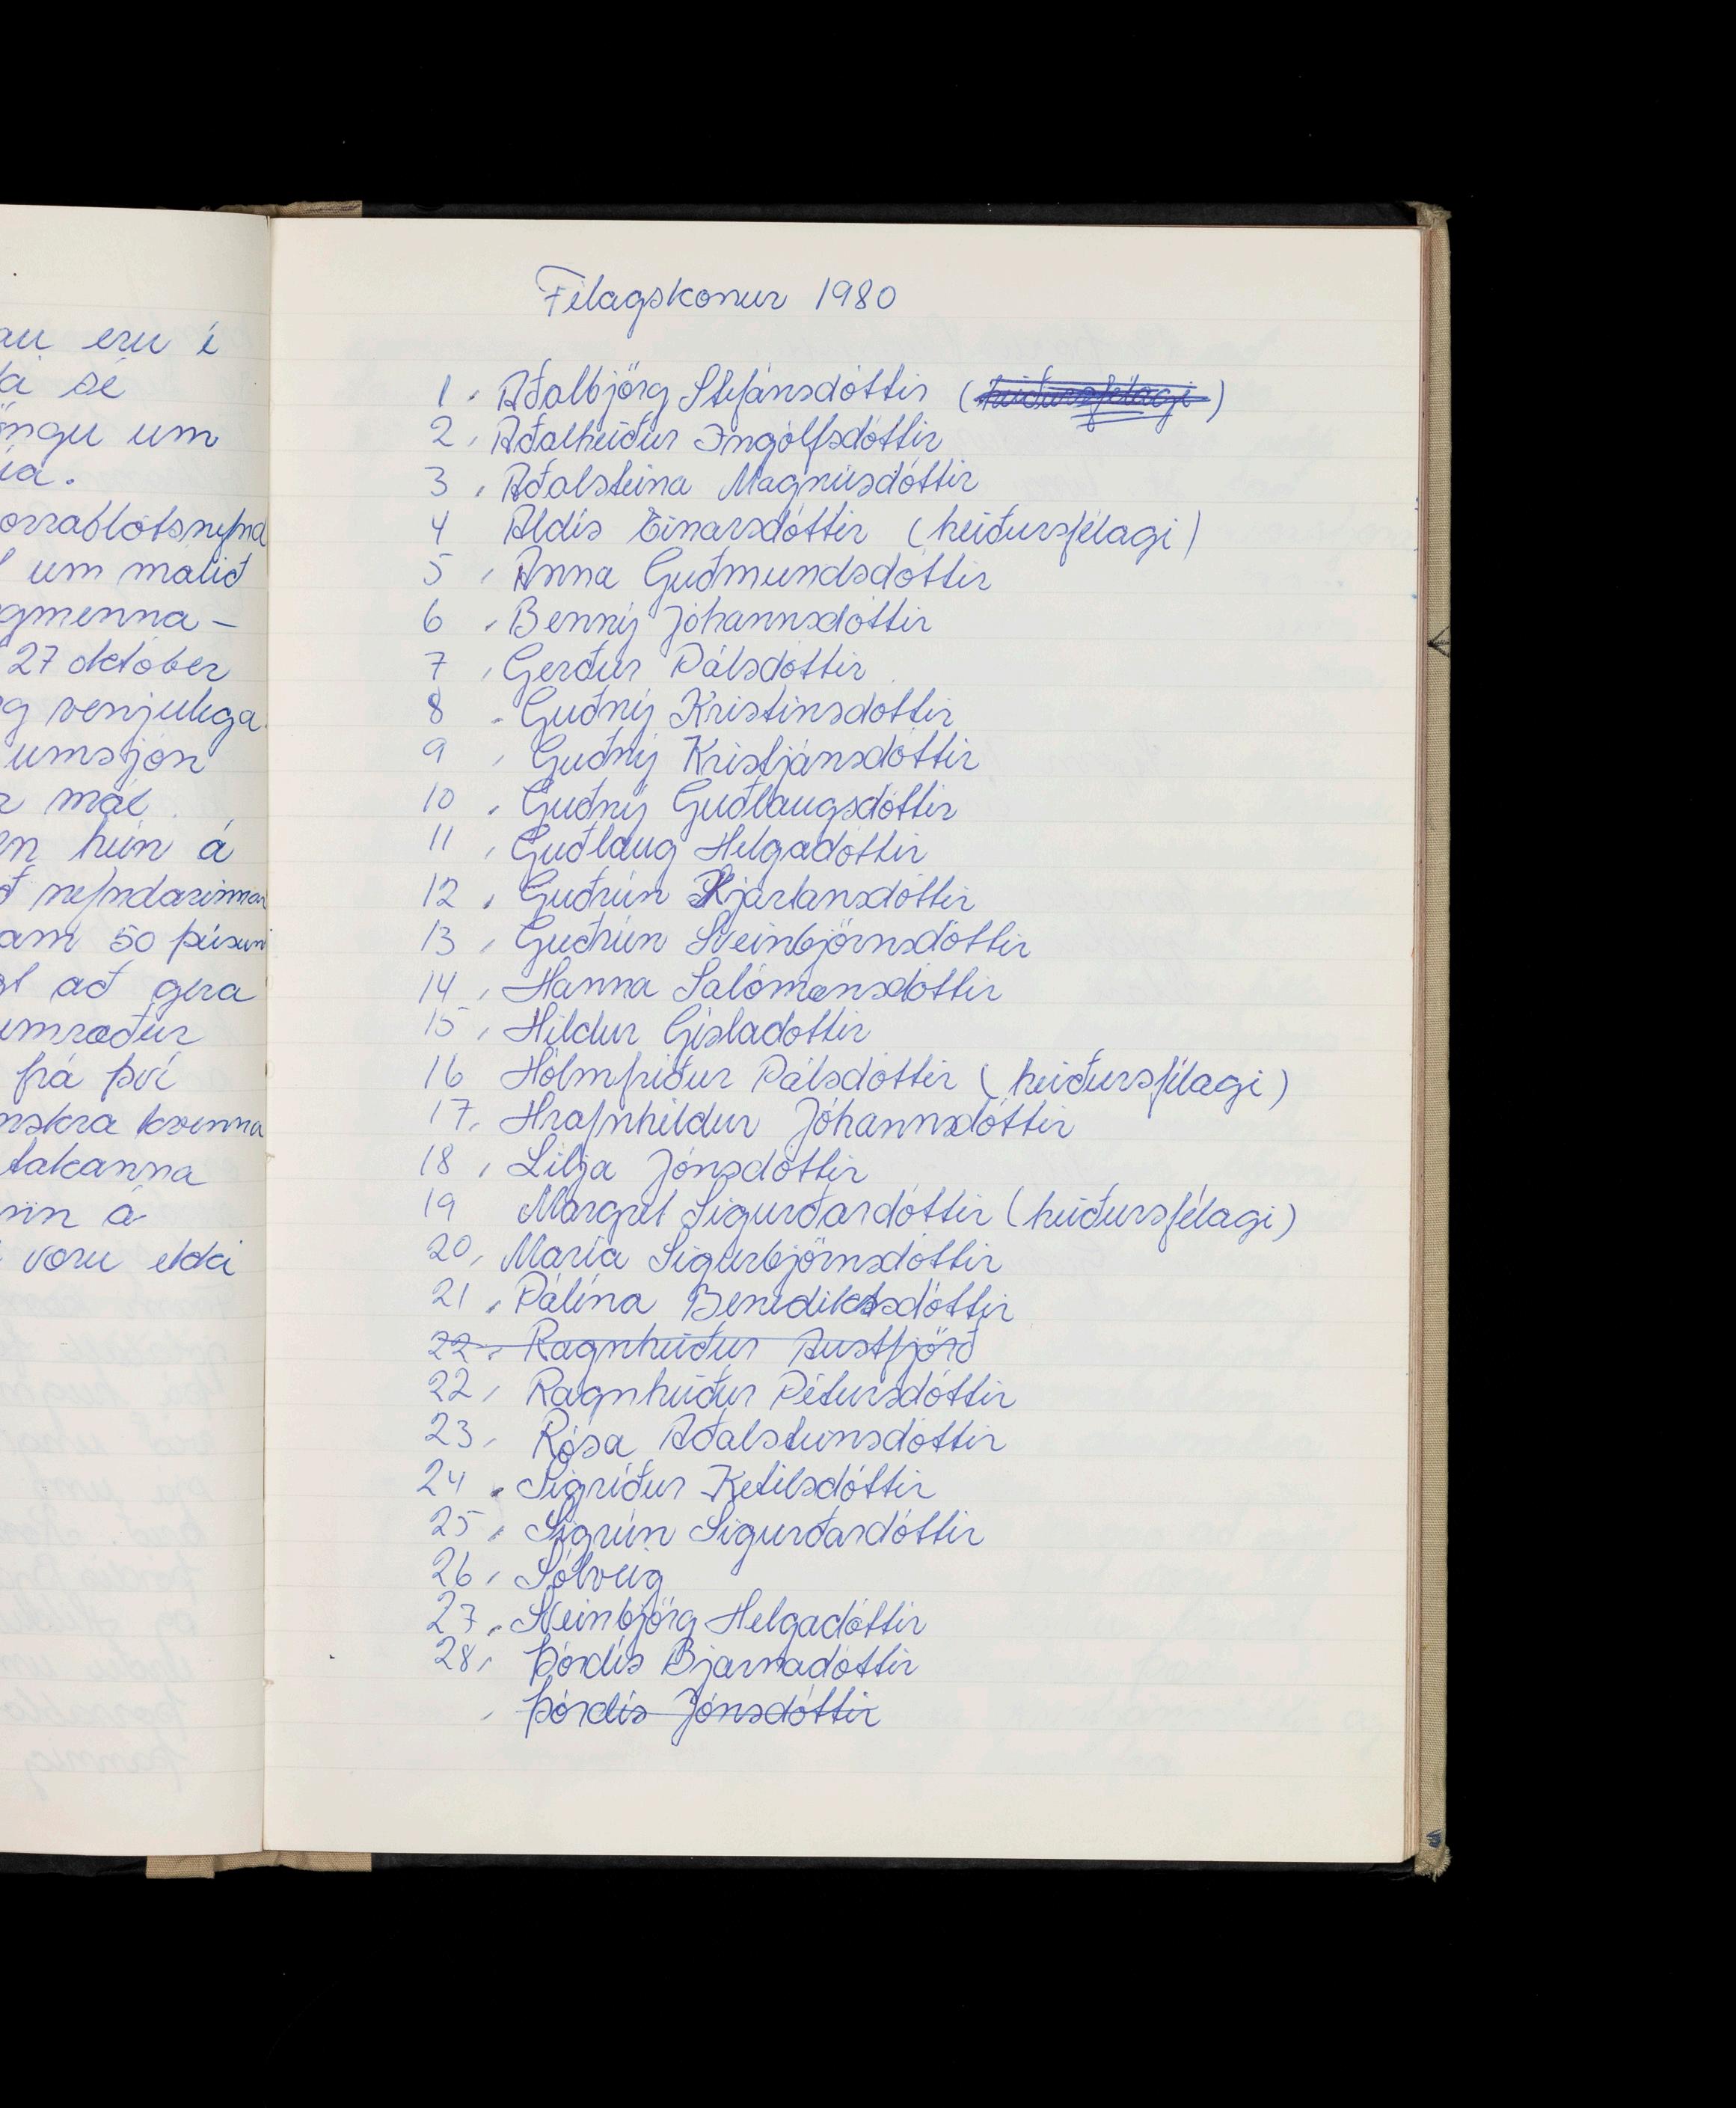 au eru í
sé
um
ía.
orrablótsnefnd
um málið
gmenna-
27 október
g venjulega
umsjón
r mál
en hún á
ð nefndarinnar
am 50 þúsun
að gera
umræður
frá því
nskra kvenna
takanna
á
voru ekki
Félagskonur 1980
1. Aðalbjörg Stefánsdóttir (heiðursfélagi)
2. Aðalheiður Ingólfsdóttir
3. Aðalsteina Magnúsdóttir
4 Aldís Einarsdóttir (heiðursfélagi)
5. Anna Guðmundsdóttir
6. Benný Jóhannsdóttir
7. Gerður Pálsdóttir
8. Guðný Kristinsdóttir
9. Guðný Kristjánsdóttir
10. Guðný Guðlaugsdóttir
11. Guðlaug Helgadóttir
12. Guðrún Kjartansdóttir
13. Guðrún Steinbjörnsdóttir
14. Hanna Salómonsdóttir
15. Hildur Gísladóttir
16 Hólmfríður Pálsdóttir (heiðursfélagi)
17. Hrafnhildur Jóhannsdóttir
18. Lilja Jónsdóttir
19 Margrét Sigurðardóttir (heiðursfélagi)
20. María Sigurbjörnsdóttir
21. Pálína Benediktsdóttir
22. Ragnheiður Austfjörð
22. Ragnheiður Pétursdóttir
23. Rósa Aðalsteinsdóttir
24. Sigríður Ketilsdóttir
25. Sigrún Sigurðardóttir
26. Sólveig
27. Steinbjörg Helgadóttir
28. Þórdís Bjarnadóttir
. Þórdís Jónsdóttir